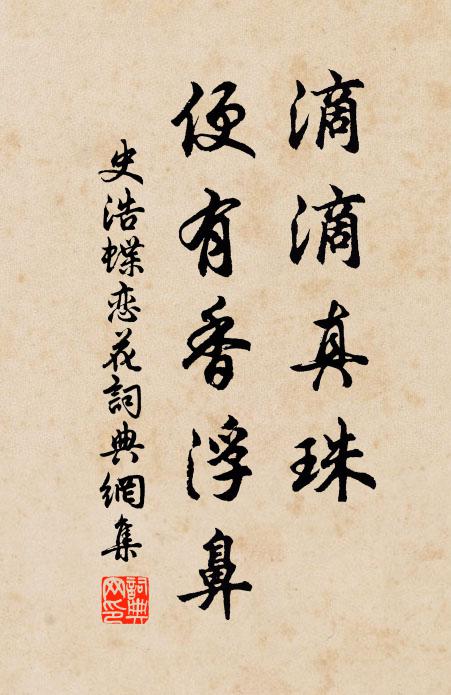 滴滴真珠
便有香浮鼻
史浩蝶恋花詞典網集
詞典网印